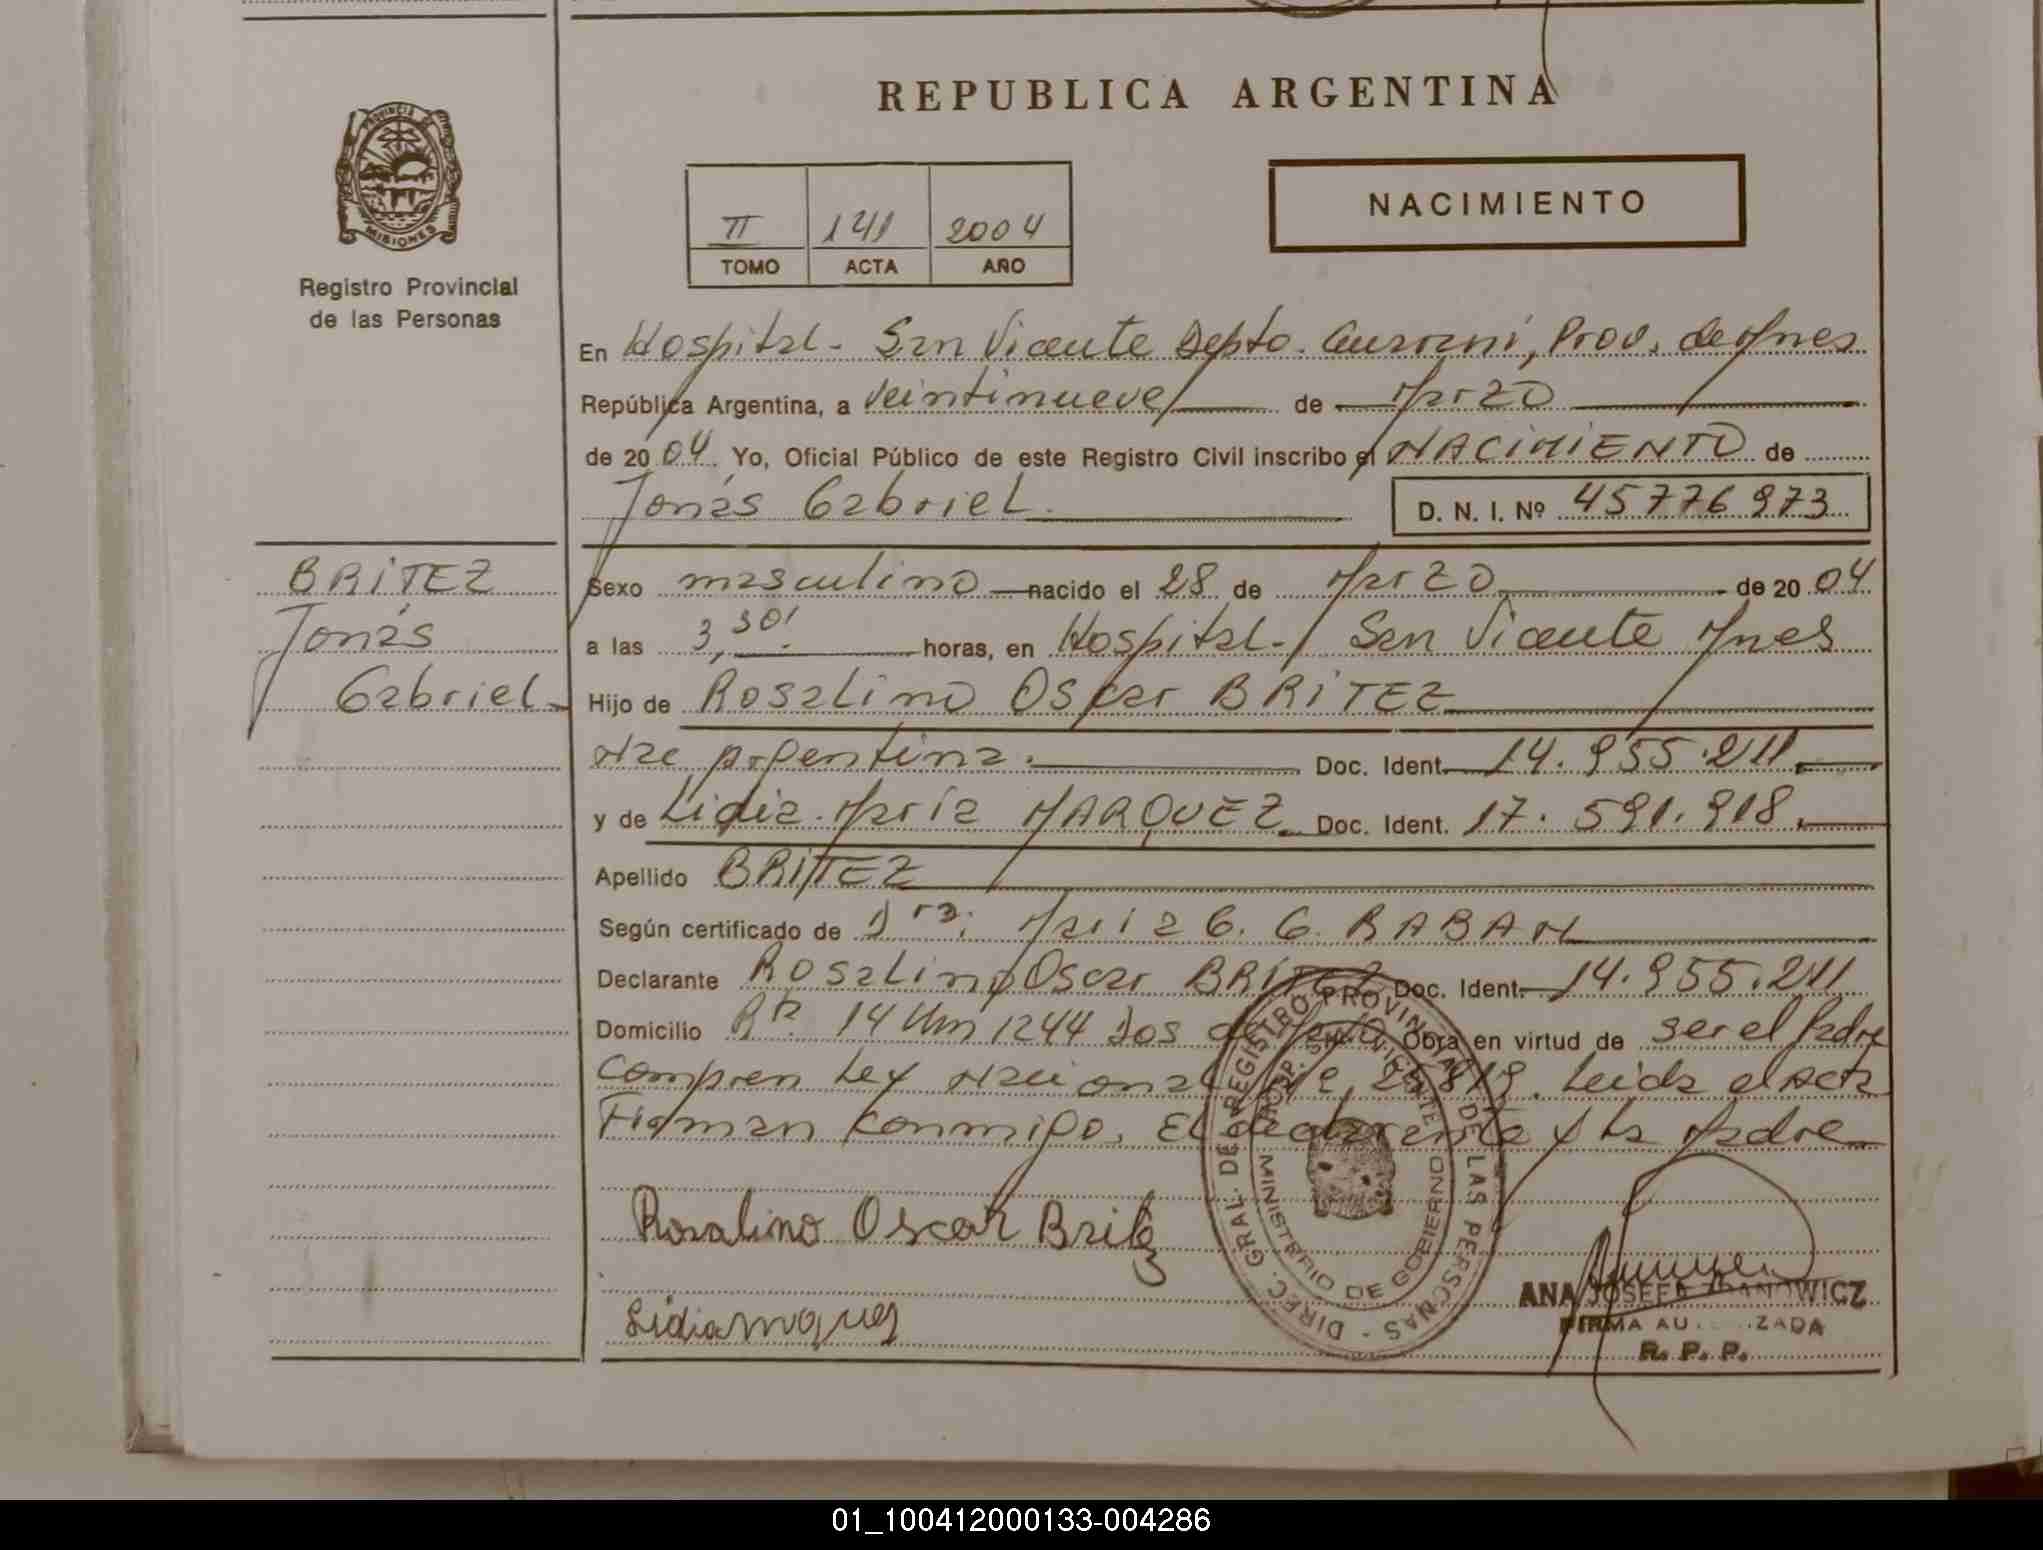 REPUBLICA ARGENTINA
PROVINCIA DE
MISIONES
Registro Provincial
de las Personas
II 141 2004
TOMO ACTA AÑO
NACIMIENTO
En Hospital - San Vicente Depto. Guaraní, Prov. de Mnes
República Argentina, a veintinueve de Marzo
de 2004. Yo, Oficial Público de este Registro Civil inscribo el NACIMIENTO de
Jonás Gabriel.
D. N. I. Nº 45776973
BRITEZ
Jonás
Gabriel
Sexo masculino nacido el 28 de Marzo de 2004
a las 3,30' horas, en Hospital - San Vicente Mnes
Hijo de Rosalino Oscar BRITEZ
Nac Argentina. Doc. Ident. 14.955.211
y de Lidia María MARQUEZ Doc. Ident. 17.591.918.
Apellido BRITEZ
Según certificado de Dra. María G. G. RABAN
Declarante Rosalino Oscar BRITEZ Doc. Ident. 14.955.211
Domicilio Rta. 14 Km 1244 Dos de Mayo Obra en virtud de ser el Padre
Compren Ley Nacional Nº 25819. Leida el Acta
Firman conmigo. El declarante y la Madre
Rosalino Oscar Britez
Lidia
DIREC. GRAL. DE REGISTRO PROVINCIAL DE LAS PERSONAS
HOSP. SAN VICENTE
MINISTERIO DE GOBIERNO
ANA JOSEFA ZDANOWICZ
FIRMA AU ZADA
R. P. P.
01_100412000133-004286